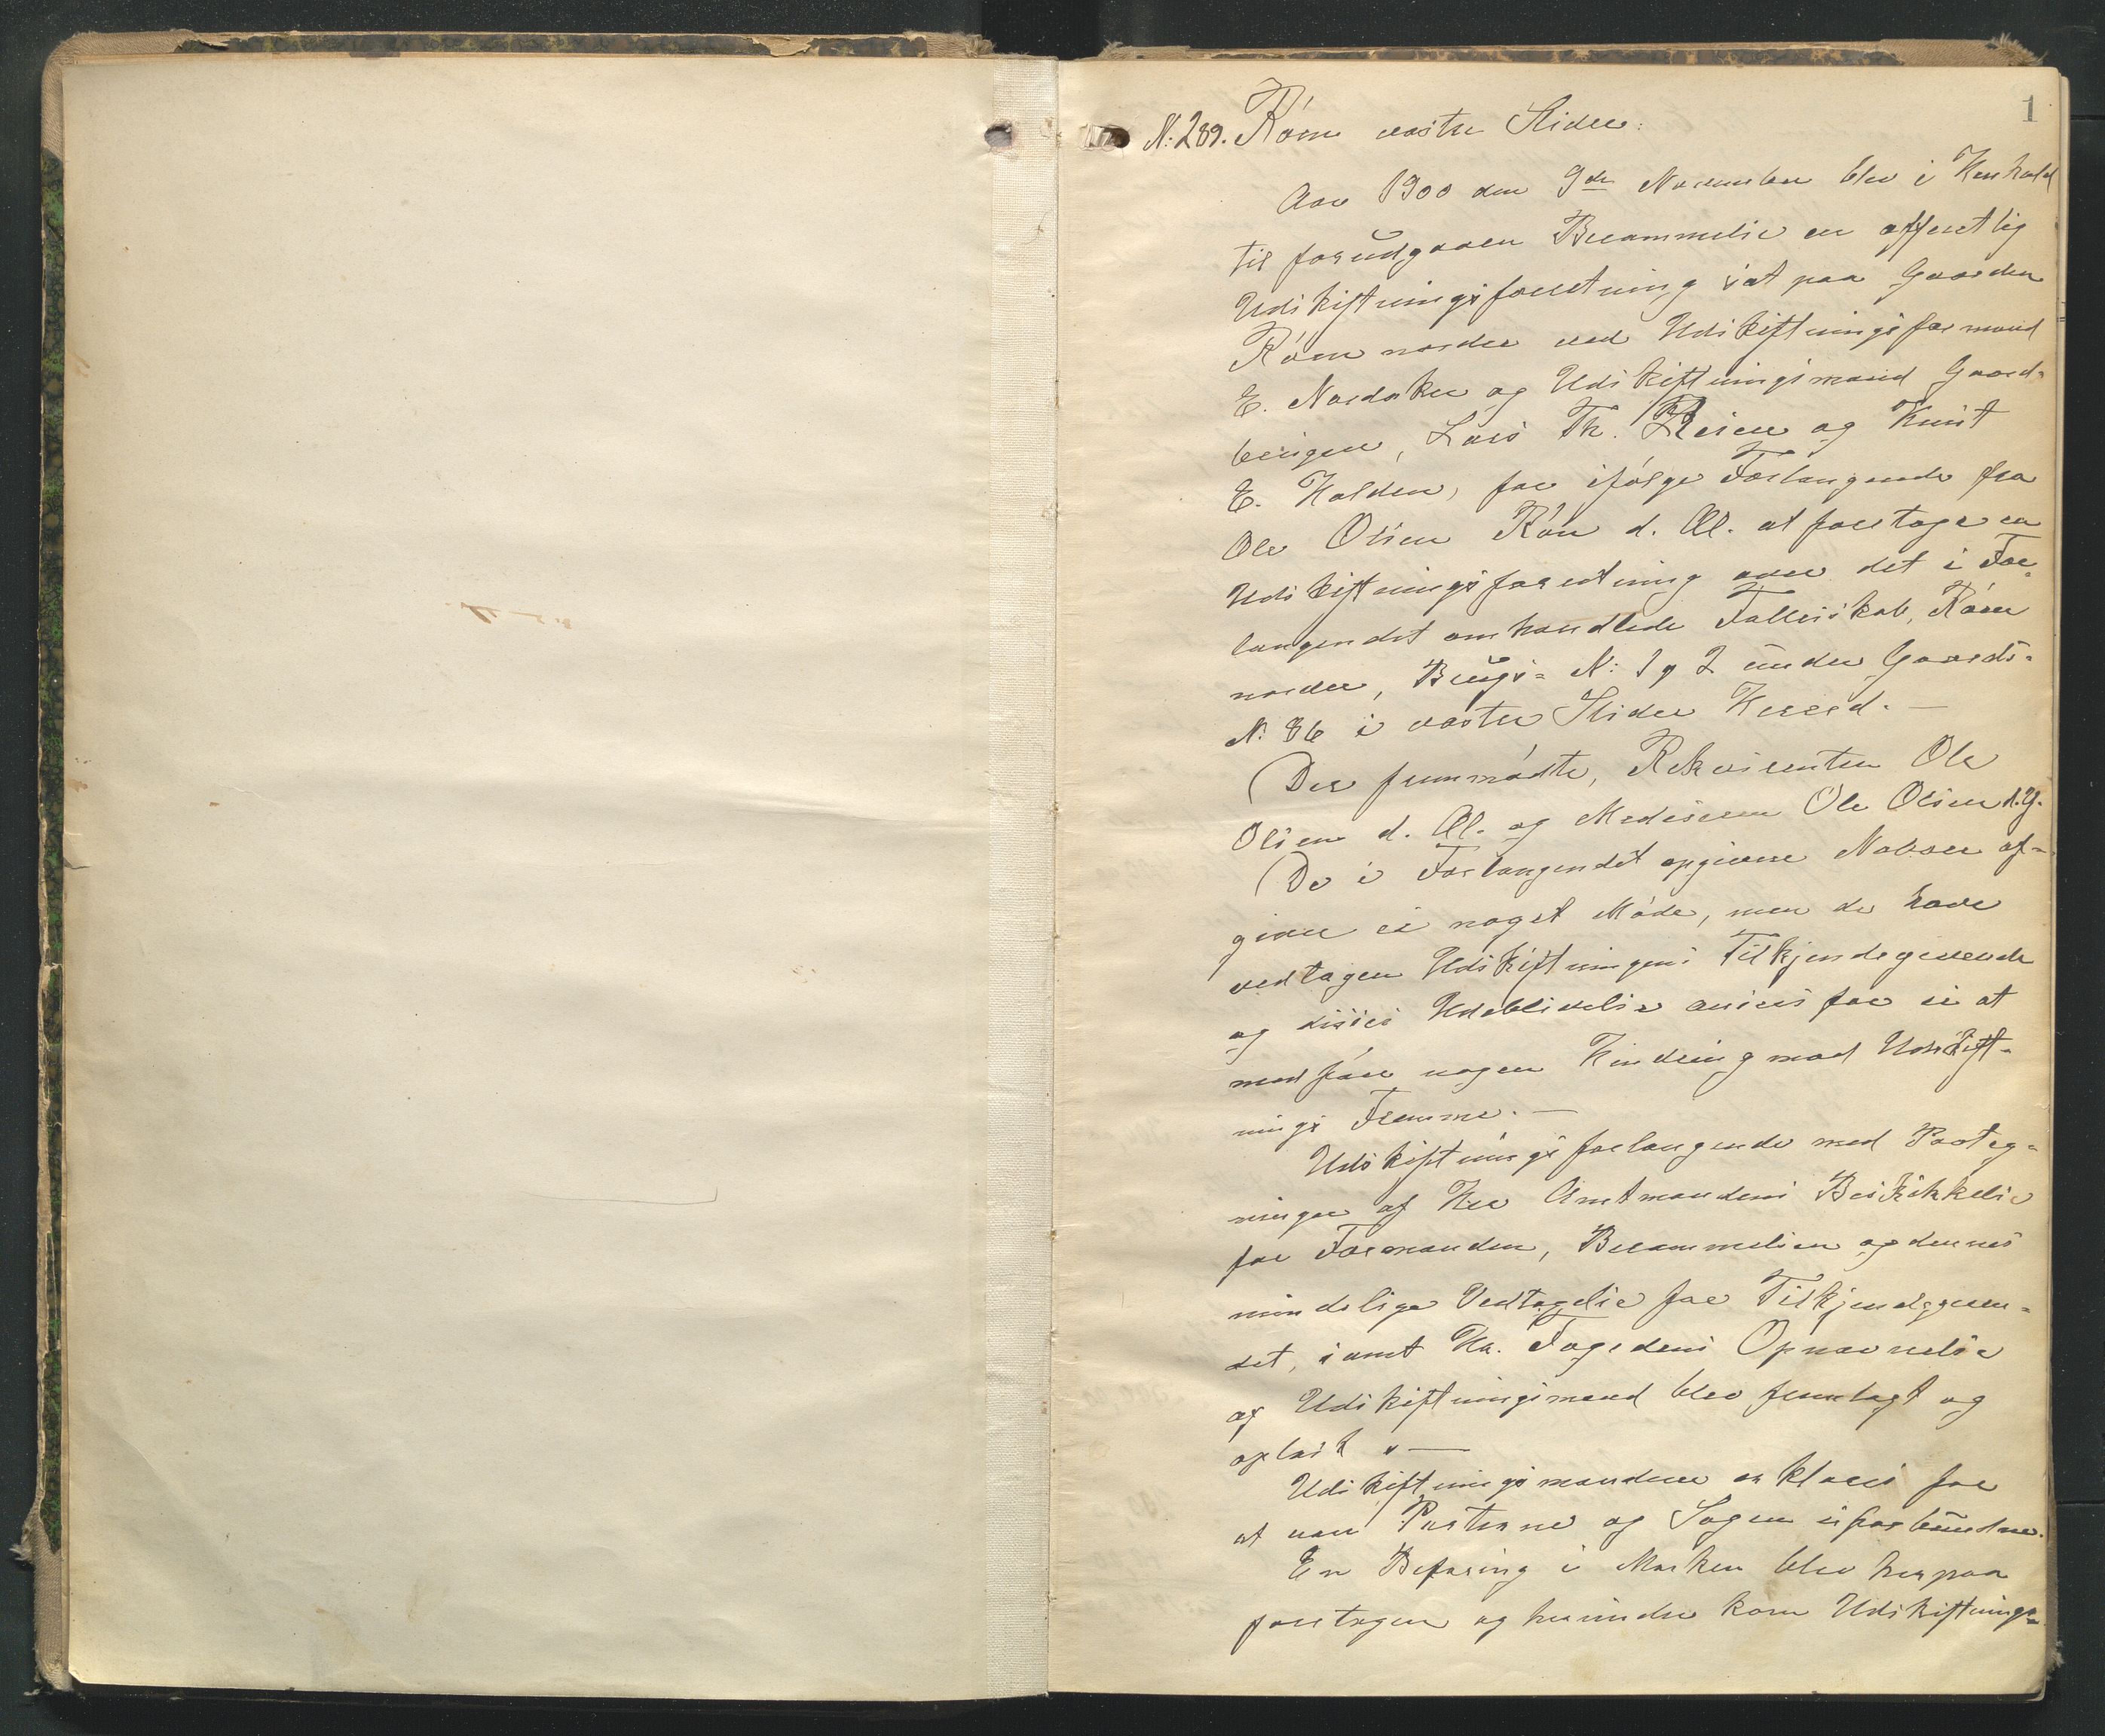 1
N: 289. Röen vestre Slidre:
Aar 1900 den 9de November blev i Henhold
til forudgaaen Berammelse en offentlig
Udskiftningsforretning sat paa Gaarden
Röen nordre ved Udskiftningsformand
E. Nordaker og Udskiftningsmænd Gaard-
brugere, Lars Th. Reien og Knut
E. Halden, for ifölge Forlangende fra
Ole Olsen Röen d. Æl. at foretage en
Udskiftningsforretning over det i For-
langendet omhandlede Fællesskab, Röen
nordre, Brugs- N: 1 og 2 under Gaards-
N: 36 i vestre Slidre Herred. —
Der fremmödte, Rekvirenten Ole
Olsen d. Æl. og Medeieren Ole Olsen d.Y.
De i Forlangendet opgivne Naboer af-
giver ei noget Möde, men de have
vedtagen Udskiftningens Tilkjendegivende
og disses Udeblivelse ansees for ei at
medföre nogen Hindring mod Udskift-
nings Fremme. —
Udskiftningsforlangende med Paateg-
ninger af Her Amtmandens Beskikkelse
for Formanden, Berammelsen og dennes
mindelige Vedtagelse for Tilkjendegiven-
det, samt Hr. Fogedens Opnævnelse
af Udskiftningsmænd blev fremlagt og
oplæst. —
Udskiftningsmændene erklæres for
at være Parterne og Sagen uforbundne.
En Befaring i Marken blev herpaa
foretagen og herunder kom Udskiftnings-